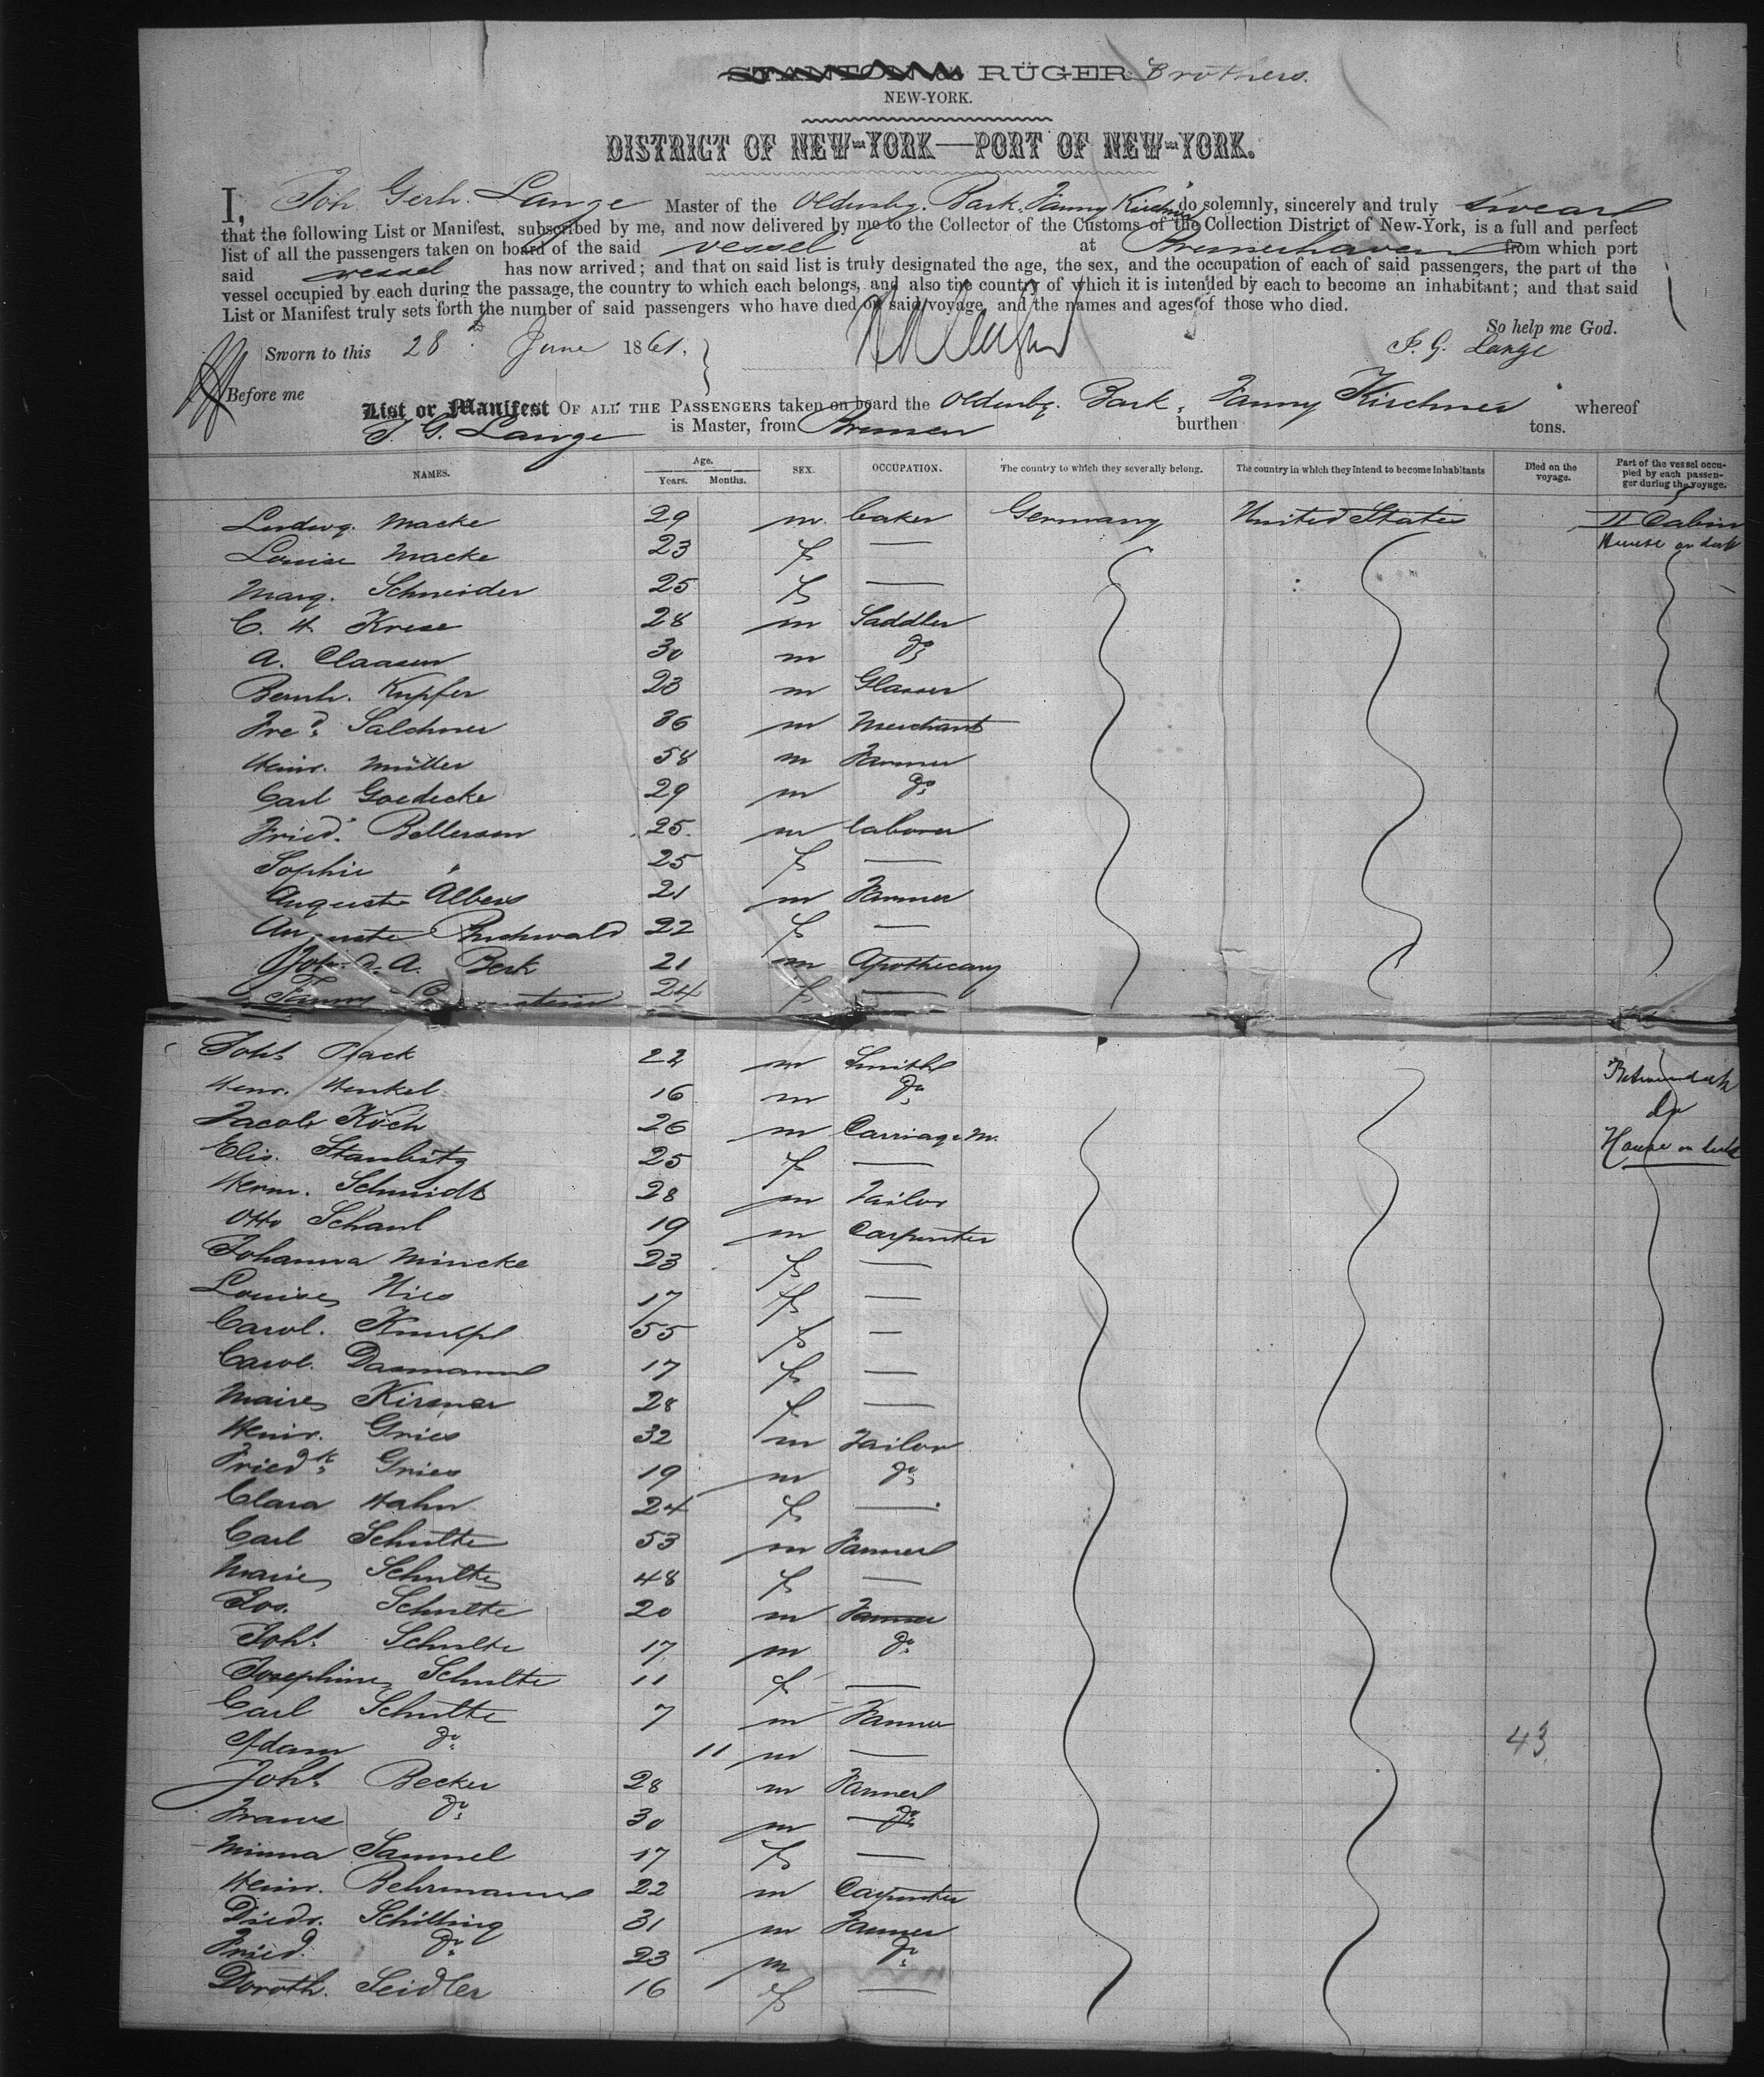 RÜGER Brothers.
NEW-YORK.
DISTRICT OF NEW-YORK—PORT OF NEW-YORK.
I, Joh. Gerh. Lange Master of the Oldenbg. Bark, Fanny Kirchner do solemnly, sincerely and truly swear
that the following List or Manifest, subscribed by me, and now delivered by me to the Collector of the Customs of the Collection District of New-York, is a full and perfect
list of all the passengers taken on board of the said vessel at Bremerhaven from which port
said vessel has now arrived; and that on said list is truly designated the age, the sex, and the occupation of each of said passengers, the part of the
vessel occupied by each during the passage, the country to which each belongs, and also the country of which it is intended by each to become an inhabitant; and that said
List or Manifest truly sets forth the number of said passengers who have died on said voyage, and the names and ages of those who died.
So help me God.
Sworn to this 28th June 1861. J. G. Lange
Before me
List or Manifest OF ALL THE PASSENGERS taken on board the Oldenbg. Bark, Fanny Kirchner whereof
J. G. Lange is Master, from Bremen burthen tons.
NAMES. Age. Years. Months. SEX. OCCUPATION. The country to which they severally belong. The country in which they intend to become inhabitants Died on the voyage. Part of the vessel occupied by each passenger during the voyage.
Ludwg. Macke 29 m. baker Germany United States II Cabin
Louise Macke 23 f — House on deck
Marg. Schneider 25 f —
C. H. Krese 28 m Saddler
A. Claasen 30 m do
Bernh. Kupfer 23 m Glaser
Fred. Salchner 36 m Merchant
Heinr. Müller 58 m Farmer
Carl Goedecke 29 m do
Fried. Bellersen 25. m laborer
Sophie " 25 f —
Auguste Albers 21 m Farmer
22 f —
Joh. A. Berk 21 m Apothecary
Fanny 24 f —
Joh. Plack 22 m Smith Betweendeck
Henr. Henkel 16 m do do
Jacob Koch 26 m Carriage m. House on deck
Elis. Staubitz 25 f —
Herm. Schmidt 28 m Tailor
Otto Schaul 19 m Carpenter
Johanna Mincke 23 f —
Louise Nies 17 f —
Carol. 55 f —
Carol. Dasmann 17 f —
Maire Kirsmer 28 f —
Heinr. Gries 32 m Tailor
Friedk. Gries 19 m do
Clara Hahn 24 f —
Carl Schulte 53 m Farmer
Marie Schulte 48 f —
Jos. Schulte 20 m Farmer
Joh. Schulte 17 m do
Josephine Schulte 11 f —
Carl Schulte 7 m Farmer
Adam do 11 m — 43
Joh. Becker 28 m Farmer
Franz do 30 m do
Minna Sammel 17 f —
Heinr. Behrmann 22 m Carpenter
Diedr. Schilling 31 m Farmer
Fried. do 23 m do
Doroth. Seidler 16 f —